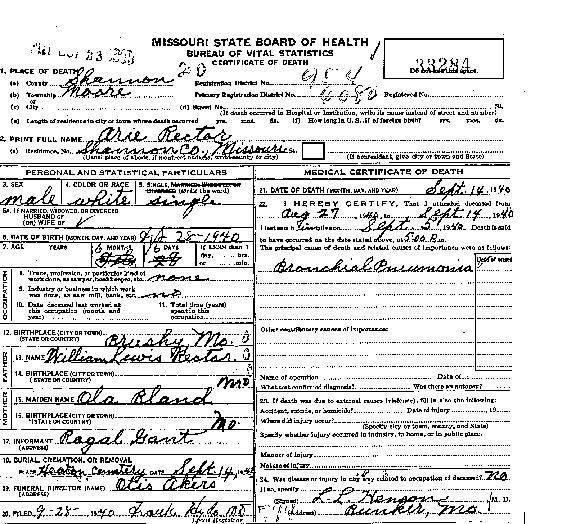 MISSOURI STATE BOARD OF HEALTH
BUREAU OF VITAL STATISTICS
CERTIFICATE OF DEATH
33284
Do not use this space.
1. PLACE OF DEATH
(a) County Shannon Registration District No.
(b) Township Moore Primary Registration District No. Registered No.
(c) City (d) Street No. St.
(If death occurred in Hospital or Institution, write its name instead of street and number)
(e) Length of residence in city or town where death occurred yrs. mos. ds. (f) How long in U.S., if of foreign birth? yrs. mos. ds.
2. PRINT FULL NAME Arie Rector
(a) Residence, No. Shannon Co., Missouri St.
(Usual place of abode, if nonresident, write county or city) (If nonresident, give city or town and State)
PERSONAL AND STATISTICAL PARTICULARS
3. SEX male
4. COLOR OR RACE white
5. SINGLE, MARRIED, WIDOWED OR DIVORCED (write the word) single
5a. IF MARRIED, WIDOWED, OR DIVORCED
HUSBAND OF
(OR) WIFE OF
6. DATE OF BIRTH (MONTH, DAY, AND YEAR) 28-1940
7. AGE YEARS MONTHS DAYS If LESS than 1
day, hrs.
or min.
OCCUPATION
8. Trade, profession, or particular kind of
work done, as sawyer, bookkeeper, etc. none
9. Industry or business in which work
was done, as saw mill, bank, etc. no
10. Date deceased last worked at
this occupation (month and
year)
11. Total time (years)
spent in this
occupation
12. BIRTHPLACE (CITY OR TOWN) Brushy Mo.
(STATE OR COUNTRY)
FATHER
13. NAME William Lewis Rector
14. BIRTHPLACE (CITY OR TOWN)
(STATE OR COUNTRY) Mo
MOTHER
15. MAIDEN NAME Ola Bland
16. BIRTHPLACE (CITY OR TOWN)
(STATE OR COUNTRY) Mo.
17. INFORMANT Rogal Gant
(ADDRESS)
18. BURIAL, CREMATION, OR REMOVAL
PLACE Heaton Cemetery DATE Sept 14, 1940
19. FUNERAL DIRECTOR (NAME) Otis Akers
(ADDRESS)
20. FILED 9-28-1940 Frank Hyde MD
Local Registrar
MEDICAL CERTIFICATE OF DEATH
21. DATE OF DEATH (MONTH, DAY, AND YEAR) Sept. 14 1940
22. I HEREBY CERTIFY, That I attended deceased from
Aug 27 1940, to Sept 14 1940
I last saw alive on Sept. 5 1940 Death is said
to have occurred on the date stated above, at 5:00 P.m.
The principal cause of death and related causes of importance were as follows:
Date of onset
Bronchial Pneumonia
Other contributory causes of importance:
Name of operation Date of
What test confirmed diagnosis? Was there an autopsy?
23. If death was due to external causes (violence), fill in also the following:
Accident, suicide, or homicide? Date of injury 19
Where did injury occur?
(Specify city or town, county, and State)
Specify whether injury occurred in industry, in home, or in public place.
Manner of injury
Nature of injury
24. Was disease or injury in any way related to occupation of deceased? no
If so, specify
(Signed) L.L. Henson M. D.
(Address) Bunker, Mo.